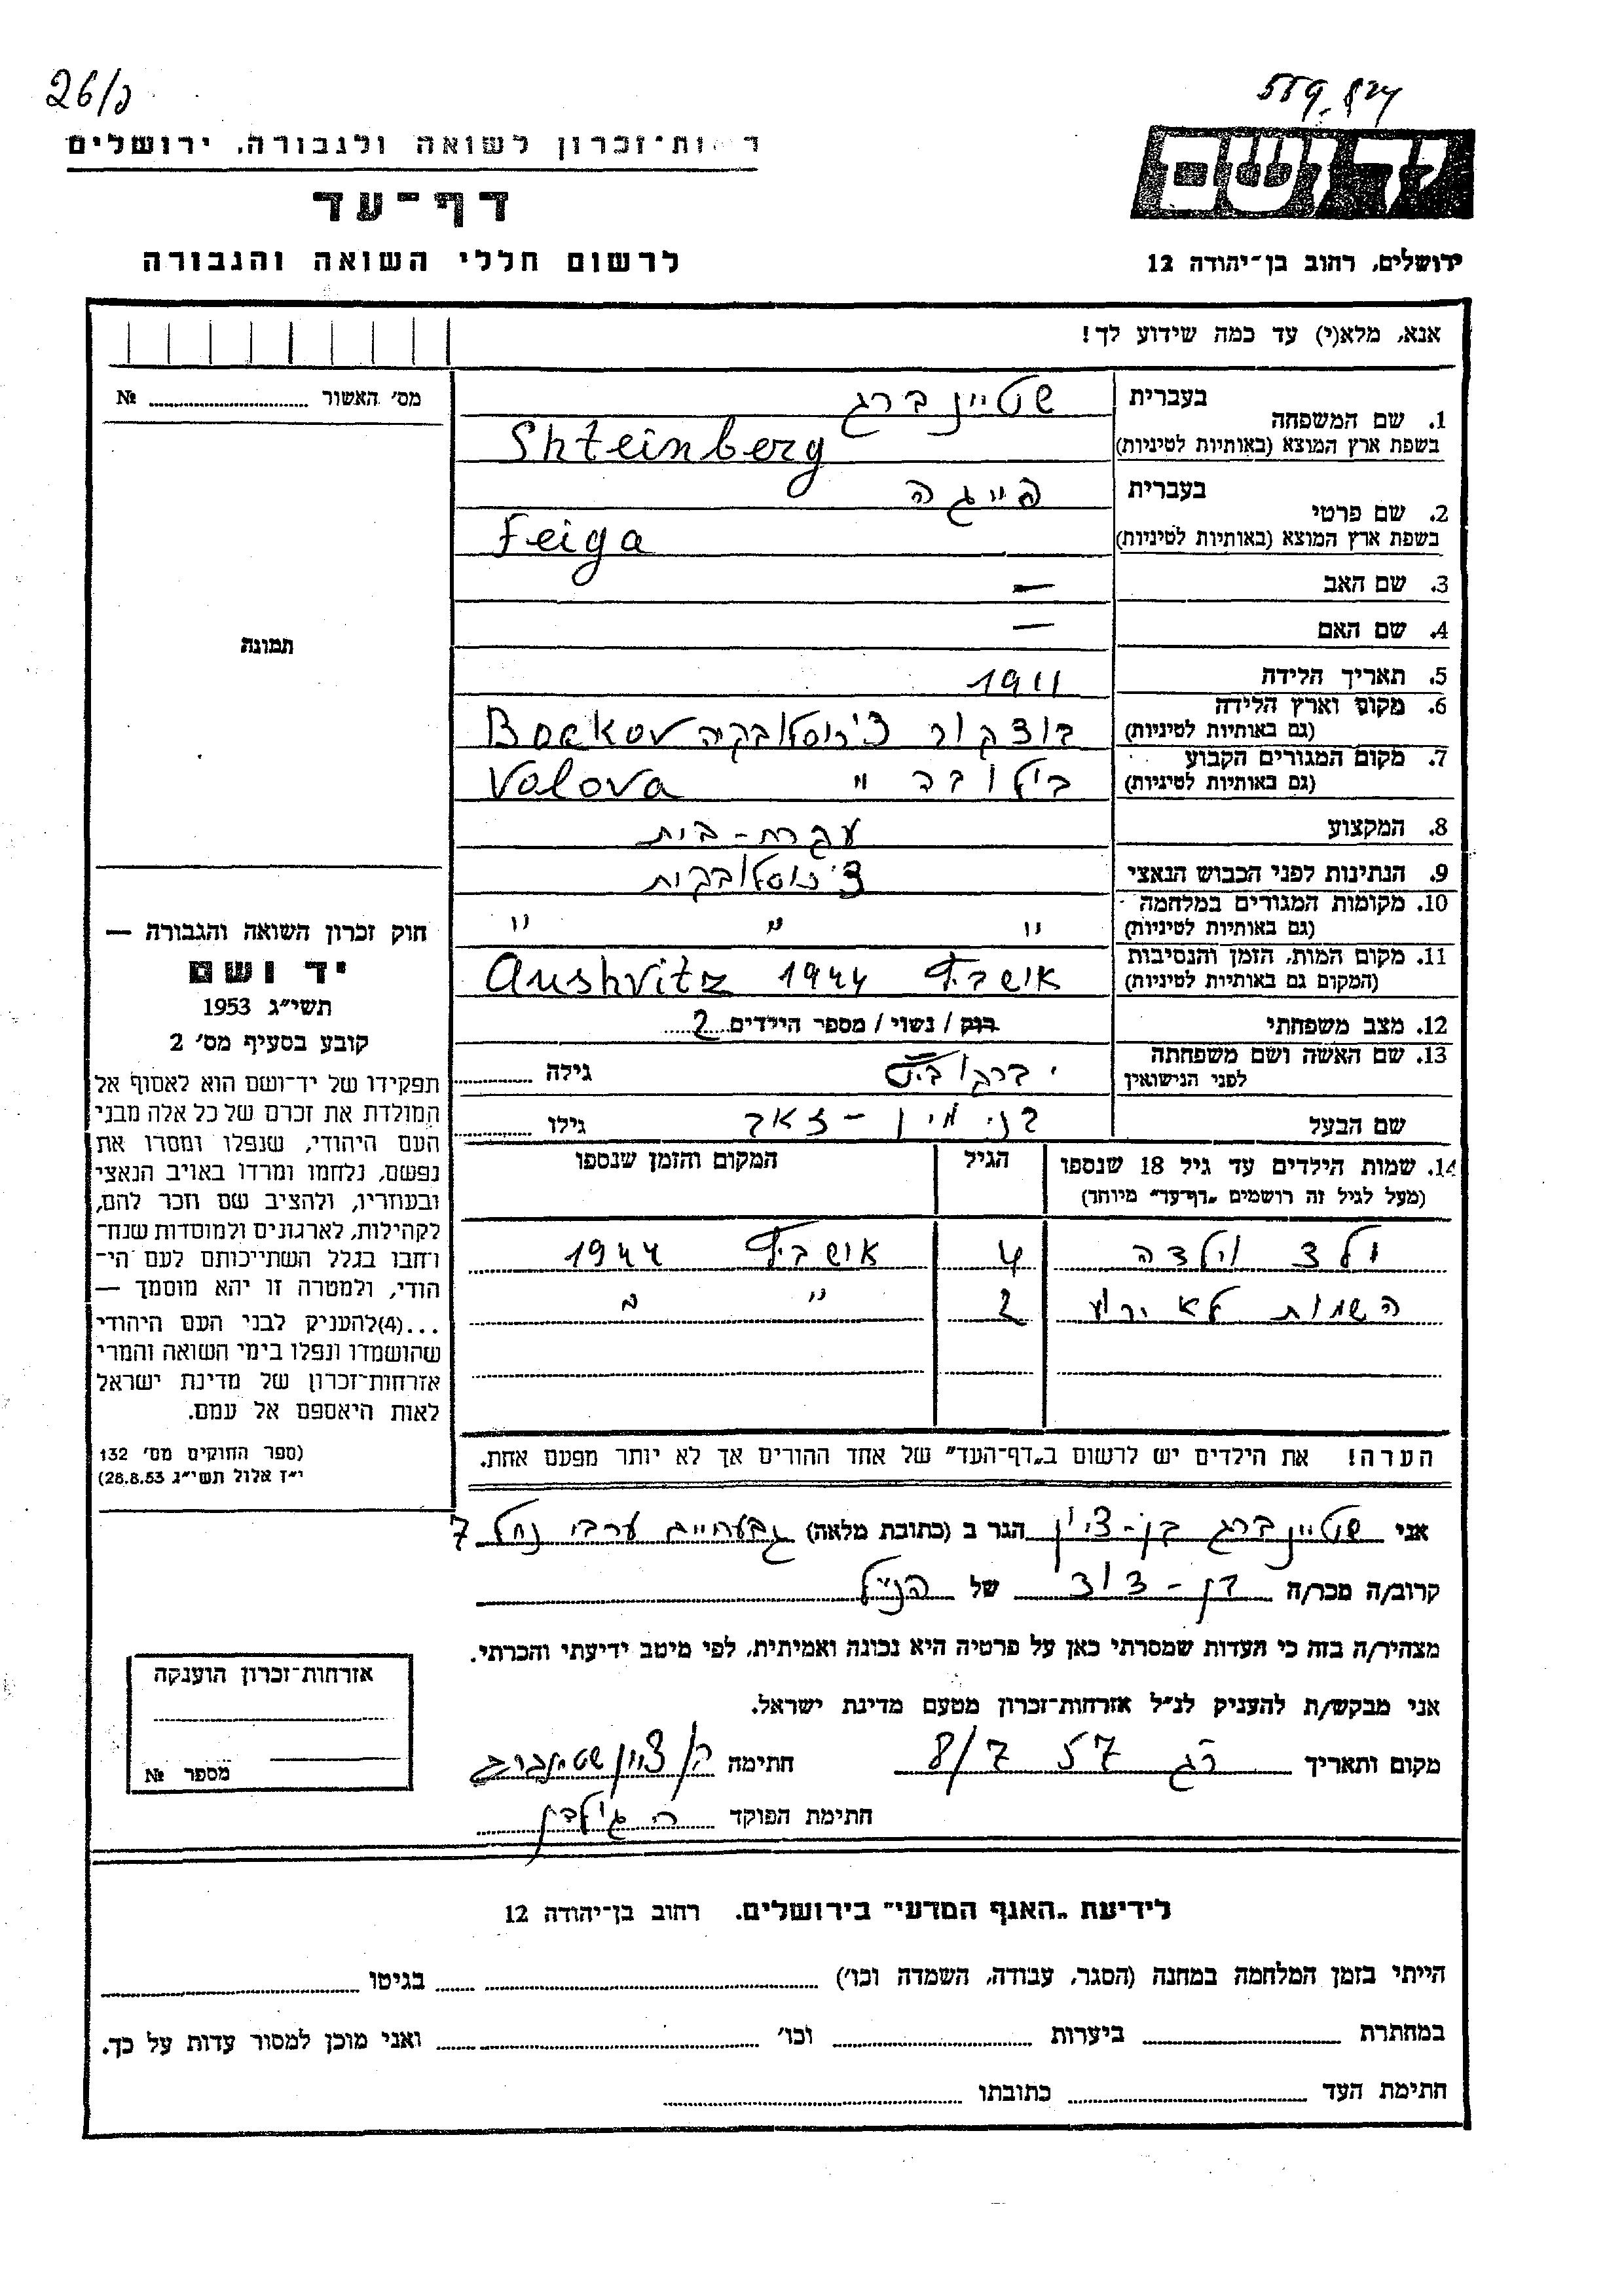 26/כ
559,824
רשות־זכרון לשואה ולגבורה, ירושלים
דף־עד
לרשום חללי השואה והגבורה
יד ושם
ירושלים, רחוב בן־יהודה 12
אנא, מלא(י) עד כמה שידוע לך!
מס׳ האשור № 
1. שם המשפחה בעברית שטיינברג
בשפת ארץ המוצא (באותיות לטיניות) Shteinberg
2. שם פרטי בעברית פייגה
בשפת ארץ המוצא (באותיות לטיניות) Feiga
3. שם האב —
4. שם האם —
תמונה
5. תאריך הלידה 1911
6. מקום וארץ הלידה (גם באותיות לטיניות) בוצקוב צ׳כוסלובקיה Bockov
7. מקום המגורים הקבוע (גם באותיות לטיניות) וילובה " Volova
8. המקצוע עקרת-בית
9. הנתינות לפני הכבוש הנאצי צ׳כוסלובקית
10. מקומות המגורים במלחמה (גם באותיות לטיניות) " " "
11. מקום המות, הזמן והנסיבות (המקום גם באותיות לטיניות) אושביץ 1944 Aushvitz
12. מצב משפחתי רוק / נשוי / מספר הילדים 2
13. שם האשה ושם משפחתה לפני הנישואין ברקוביץ גילה
שם הבעל בנימין - זאב גילו
14. שמות הילדים עד גיל 18 שנספו (מעל לגיל זה רושמים „דף־עד" מיוחד) הגיל המקום והזמן שנספו
ילד וילדה 4 אושביץ 1944
השמות לא ידוע 2 " "
הערה! את הילדים יש לרשום ב„דף־העד" של אחד ההורים אך לא יותר מפעם אחת.
חוק זכרון השואה והגבורה —
יד ושם
תשי״ג 1953
קובע בסעיף מס׳ 2
תפקידו של יד־ושם הוא לאסוף אל
המולדת את זכרם של כל אלה מבני
העם היהודי, שנפלו ומסרו את
נפשם, נלחמו ומרדו באויב הנאצי
ובעוזריו, ולהציב שם וזכר להם,
לקהילות, לארגונים ולמוסדות שנח־
רבו בגלל השתייכותם לעם הי־
הודי, ולמטרה זו יהא מוסמך —
...(4)להעניק לבני העם היהודי
שהושמדו ונפלו בימי השואה והמרי
אזרחות־זכרון של מדינת ישראל
לאות היאספם אל עמם.
(ספר החוקים מס׳ 132
י״ז אלול תשי״ג 28.8.53)
אני שטיינברג בן-ציון הגר ב (כתובת מלאה) גבעתיים ערבי נחל 7
קרוב/ה מכר/ה בן-דוד של הנ״ל
מצהיר/ה בזה כי העדות שמסרתי כאן על פרטיה היא נכונה ואמיתית, לפי מיטב ידיעתי והכרתי.
אני מבקש/ת להעניק לנ״ל אזרחות־זכרון מטעם מדינת ישראל.
מקום ותאריך רג 8/7 57 חתימה בן ציון שטינברג
חתימת הפוקד
אזרחות־זכרון הוענקה
מספר №
לידיעת „האגף המדעי" בירושלים. רחוב בן־יהודה 12
הייתי בזמן המלחמה במחנה (הסגר, עבודה, השמדה וכו׳) בגיטו
במחתרת ביערות וכו׳ ואני מוכן למסור עדות על כך.
חתימת העד כתובתו